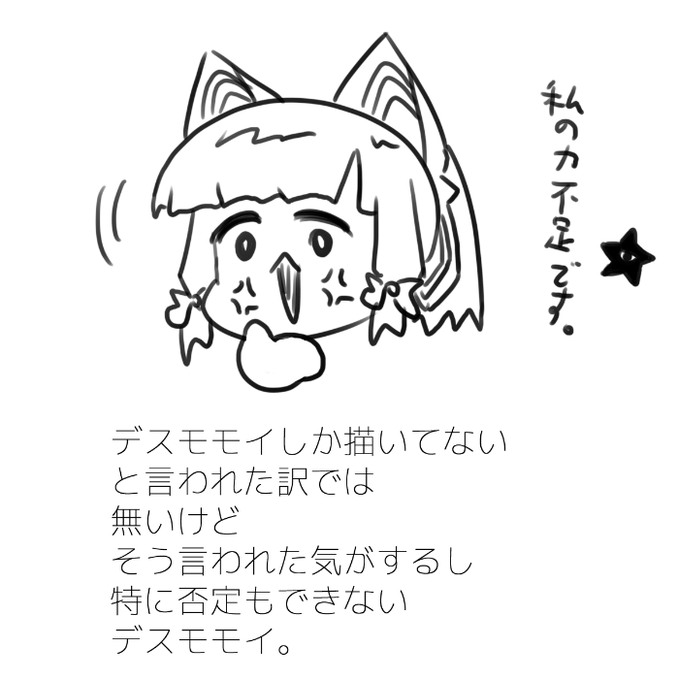 私の力不足です。
デスモモイしか描いてない
と言われた訳では
無いけど
そう言われた気がするし
特に否定もできない
デスモモイ。